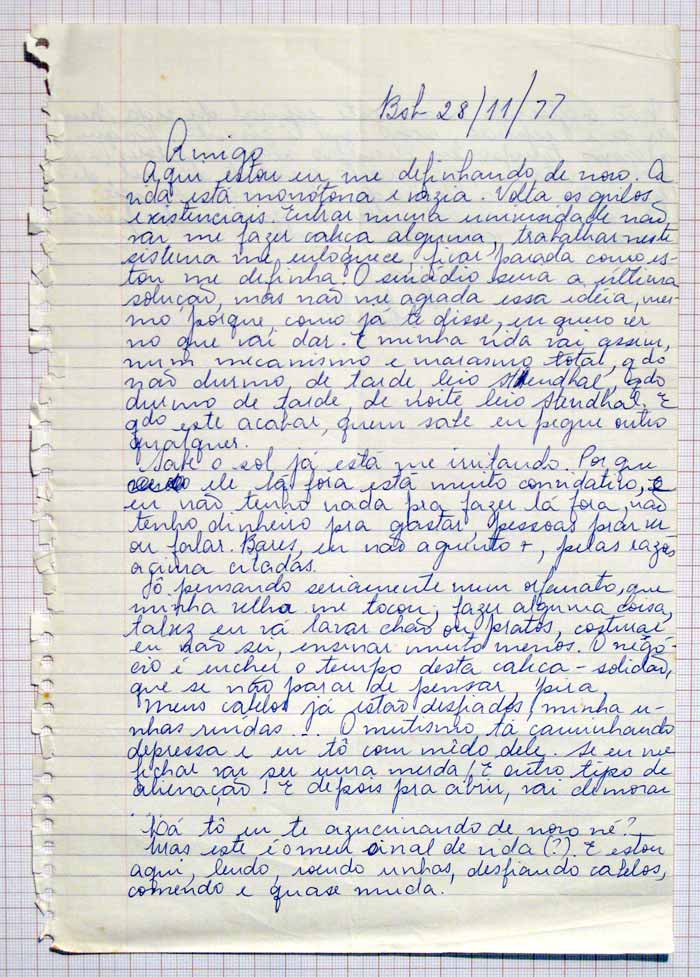 Bsb 28/11/77
Amigo
Aqui estou eu me definhando de novo. A
vida está monótona e vazia. Volta os grilos
existenciais. Entrar numa universidade não
vai me fazer cabeça alguma, trabalhar neste
sistema me enloquece, ficar parada como es-
tou me definha! O suicídio seria a última
solução, mas não me agrada essa idéia, mes-
mo porque, como já te disse, eu quero ver
no que vai dar. E minha vida vai assim,
num mecanismo e marasmo total, qdo
não durmo, de tarde leio Stendhal, qdo
durmo de tarde, de noite leio Stendhal. E
qdo este acabar, quem sabe eu pegue outro
qualquer.
Sabe o sol já está me irritando. Por que
ele lá fora está muito convidativo, e
eu não tenho nada pra fazer lá fora, não
tenho dinheiro pra gastar, pessoas pra ver
ou falar. Bares, eu não aguento +, pelas razões
acima citadas.
Tô pensando seriamente num orfanato, que
minha velha me tocou, fazer alguma coisa,
talvez eu vá lavar chão ou pratos, costurar
eu não sei, ensinar muito menos. O negó-
cio é encher o tempo desta cabeça-solidão,
que se não parar de pensar, pira.
Meus cabelos já estão desfiados, minha u-
nhas ruídas... O mutismo tá caminhando
depressa e eu tô com mêdo dele. Se eu me
fichar vai ser uma merda! E outro tipo de
alienação! E depois pra abrir, vai demorar
.
Já tô eu te azucrinando de novo né?
Mas este é o meu sinal de vida (?). E estou
aqui, lendo, roendo unhas, desfiando cabelos,
comendo e quase muda.